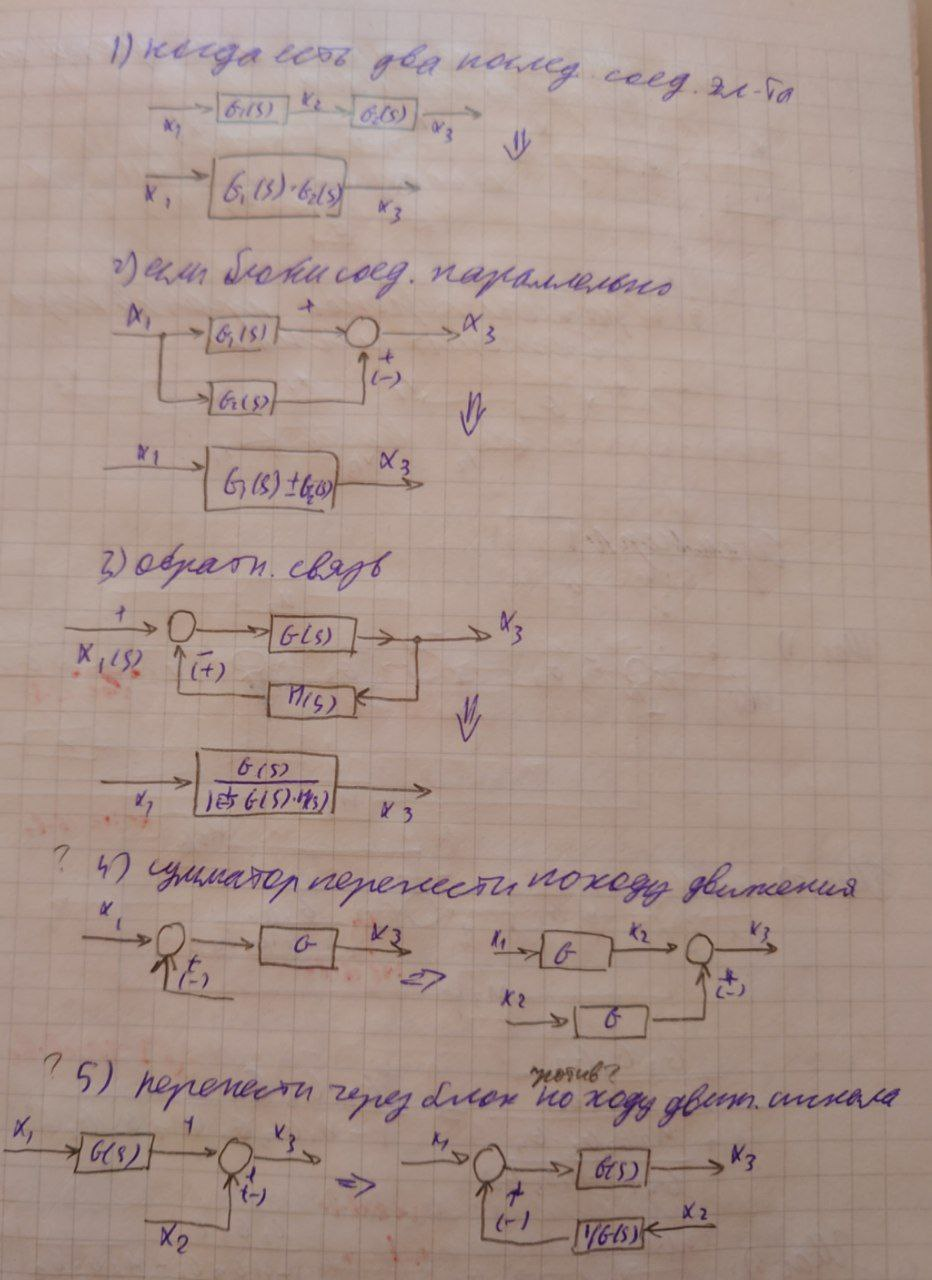 1) когда есть два послед. соед. эл-та
x₁ G₁(s) x₂ G₂(s) x₃
⇓
x₁ G₁(s)·G₂(s) x₃
2) если блоки соед. параллельно
x₁ G₁(s) + x₃
+
(-)
G₂(s)
⇓
x₁ G₁(s) ± G₂(s) x₃
3) обратн. связь
+ G(s) x₃
x₁(s) -
(+)
H(s)
⇓
G(s)
x₁ 1 ± G(s)·H(s) x₃
? 4) сумматор перенести по ходу движения
x₁ G x₃ ⇒ x₁ G x₂ x₃
+
(-)
+
(-)
x₂ G
против?
? 5) перенести через блок по ходу движ. сигнала
x₁ G(s) + x₃ ⇒ x₁ G(s) x₃
+
(-)
+
(-)
x₂ 1/G(s) x₂